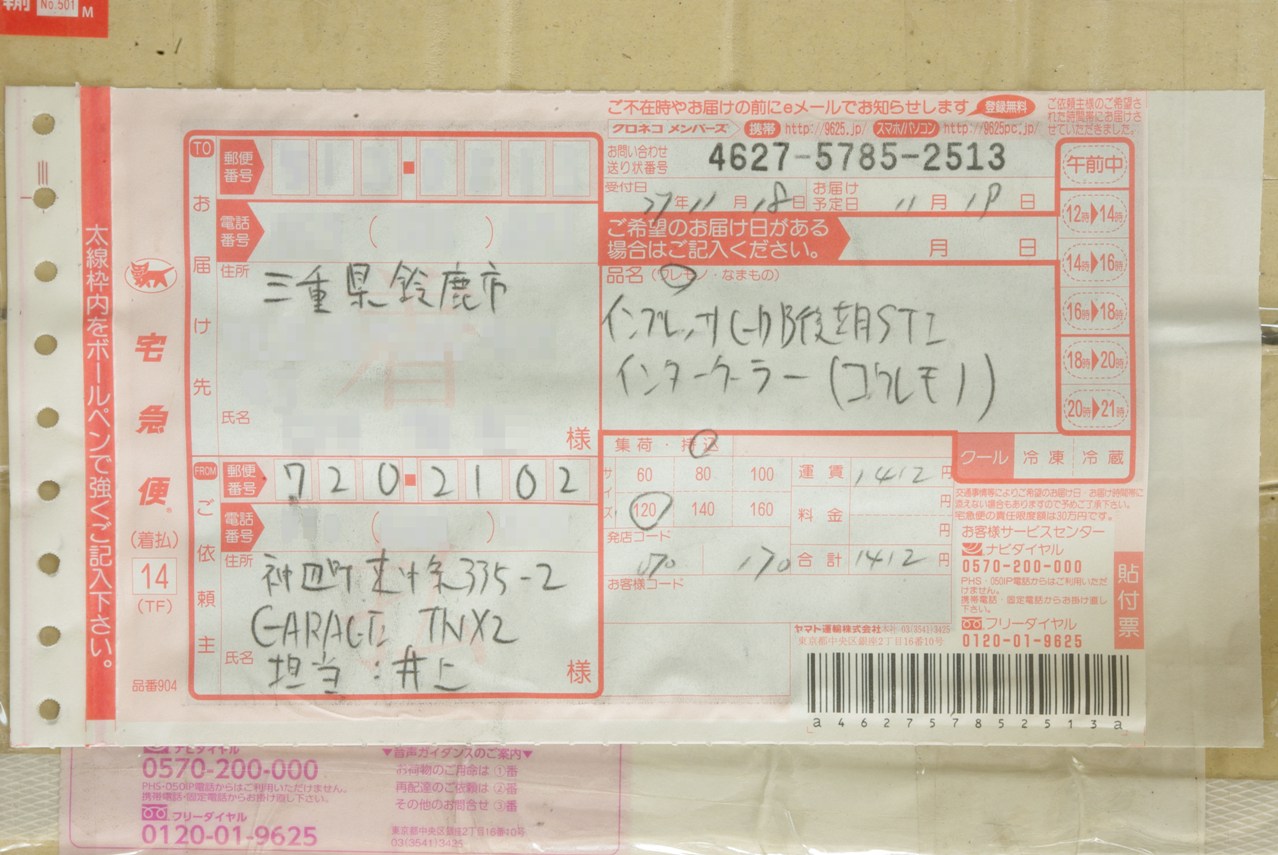 No.501
M
ご不在時やお届けの前にeメールでお知らせします 登録無料
クロネコ メンバーズ 携帯 http://9625.jp/ スマホ/パソコン http://9625pc.jp/
ご依頼主様のご希望さ
れた時間帯にお届けさ
せていただきました。
お問い合わせ
送り状番号
4627-5785-2513
受付日 27年 11月 18日
お届け
予定日 11月 19日
ご希望のお届け日がある
場合はご記入ください。
月 日
午前中
12時▶14時
14時▶16時
16時▶18時
18時▶20時
20時▶21時
太線枠内をボールペンで強くご記入下さい。
宅急便
(着払)
14
(TF)
品番904
TO
お届け先
郵便
番号
電話
番号
( )
住所
三重県鈴鹿市
氏名
様
品名(ワレモノ・なまもの)
インプレッサGDB後期STI
インタークーラー(コワレモノ)
FROM
ご依頼主
郵便
番号
720-2102
電話
番号
( )
住所
神辺町 335-2
GARAGE TNX2
氏名
担当:井上
様
集荷・持込
サイズ
60 80 100
120 140 160
運賃 1412円
料金 円
円
合計 1412円
発店コード
070 170
お客様コード
クール 冷凍 冷蔵
交通事情等によりご希望のお届け日・お届け時間帯に
添えない場合もありますので予めご了承下さい。
宅急便の責任限度額は30万円です。
お客様サービスセンター
ナビダイヤル
0570-200-000
PHS・050IP電話からはご利用いただ
けません。
携帯電話・固定電話からお掛け直し
下さい。
フリーダイヤル
0120-01-9625
貼付票
ヤマト運輸株式会社 本社 03(3541)3425
東京都中央区銀座2丁目16番10号
a462757852513a
ナビダイヤル
0570-200-000
PHS・050IP電話からはご利用いただけません。
携帯電話・固定電話からお掛け直し下さい。
フリーダイヤル
0120-01-9625
▼音声ガイダンスのご案内▼
お荷物のご用命は ①番
再配達のご依頼は ②番
その他のお問合せ ③番
東京都中央区銀座2丁目16番10号
03(3541)3425